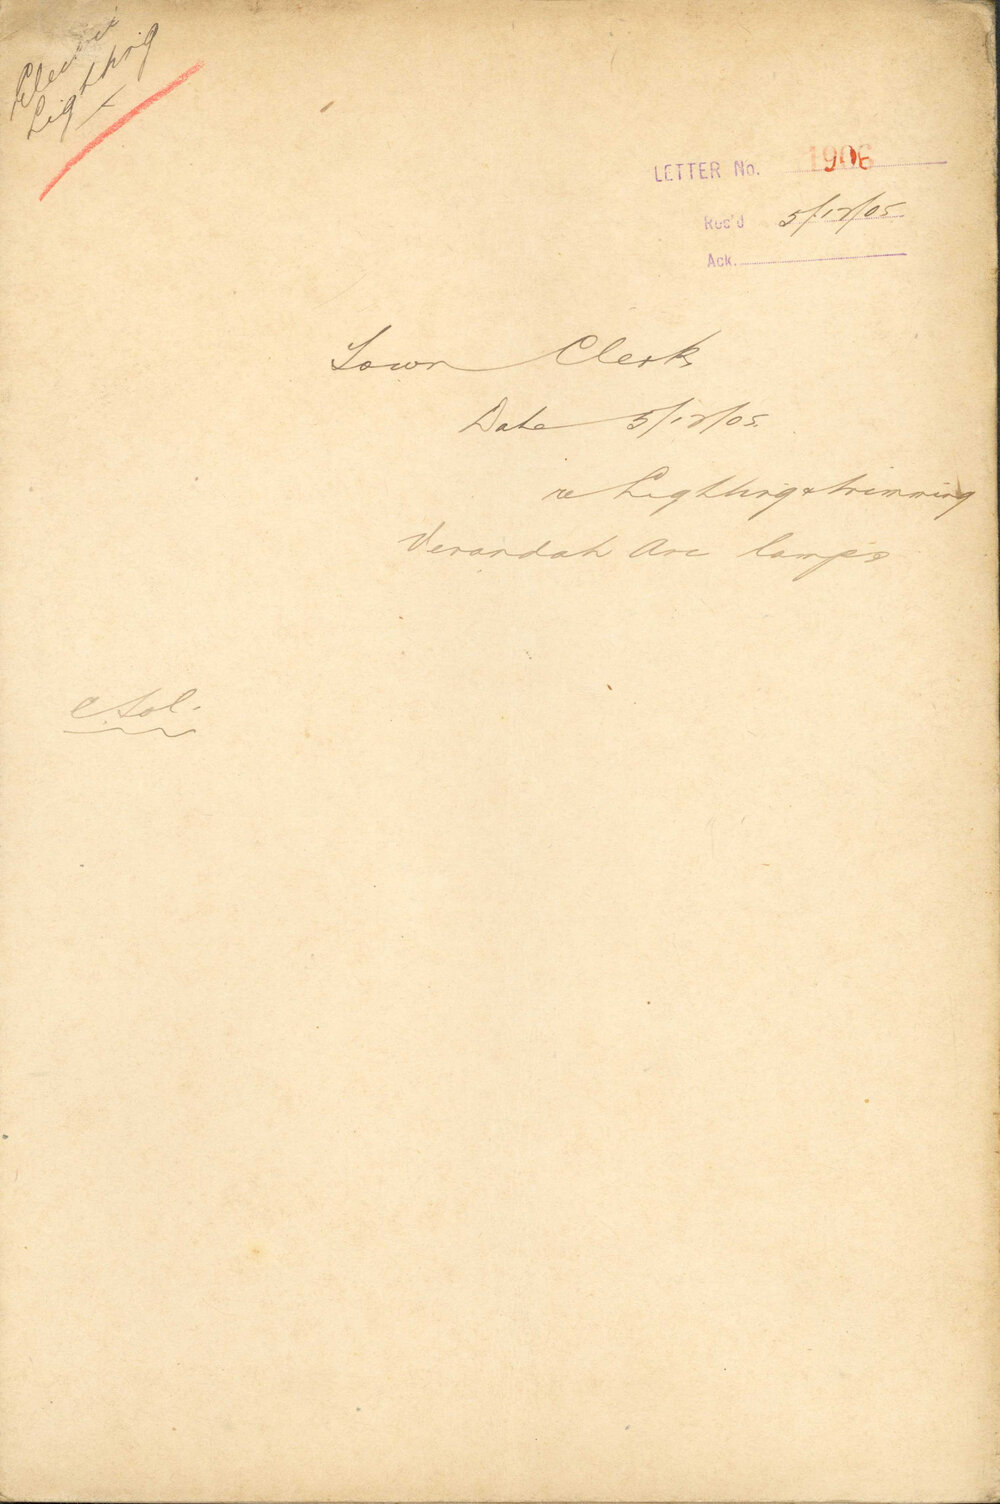 Electric
Lighting
LETTER No. 1906
Rec'd 5/12/05
Ack.
Town Clerk
Date 5/12/05
re Lighting & trimming
Verandah Arc lamps